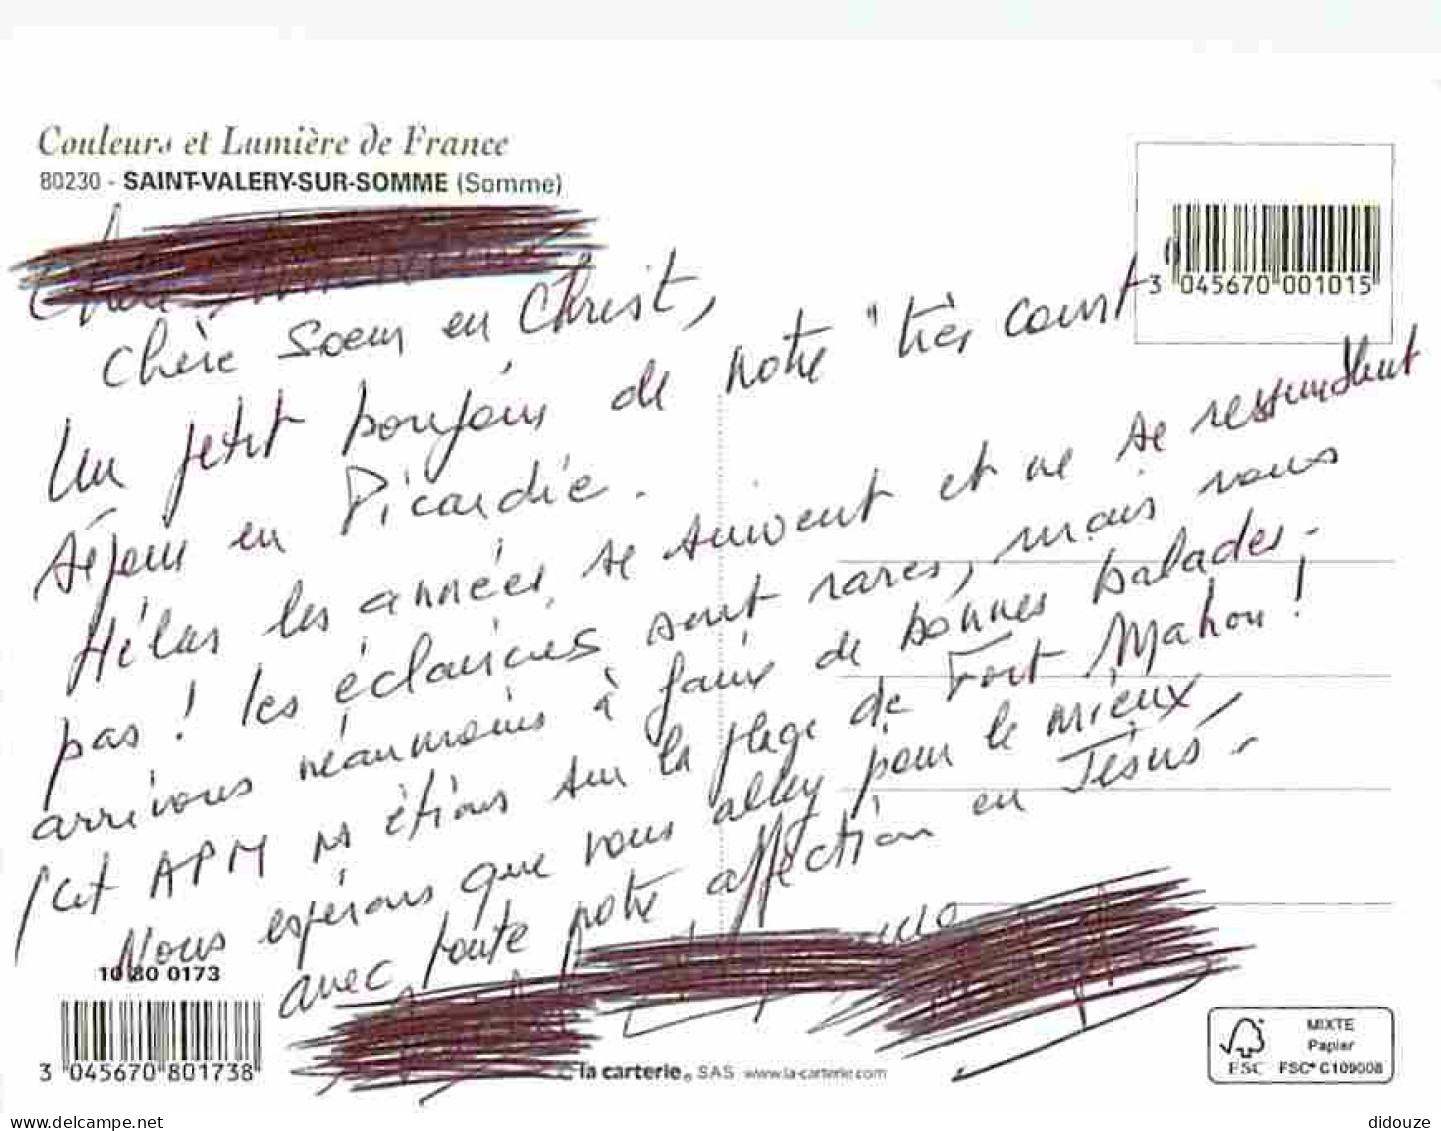 Couleurs et Lumière de France
80230 - SAINT-VALERY-SUR-SOMME (Somme)
3 045670 001015
Chère Soeur en Christ,
Un petit bonjour de notre "très court"
séjour en Picardie.
Hélas les années se suivent et ne se ressemblent
pas ! les éclaircies sont rares, mais nous
arrivons néanmoins à faire de bonnes balades.
Cet APM ns étions sur la plage de Fort Mahon !
Nous espérons que vous allez pour le mieux,
avec toute notre affection en Jésus.
10 80 0173
3 045670 801738
© la carterie, SAS www.la-carterie.com
MIXTE
Papier
FSC
FSC® C109008
delcampe.net
didouze